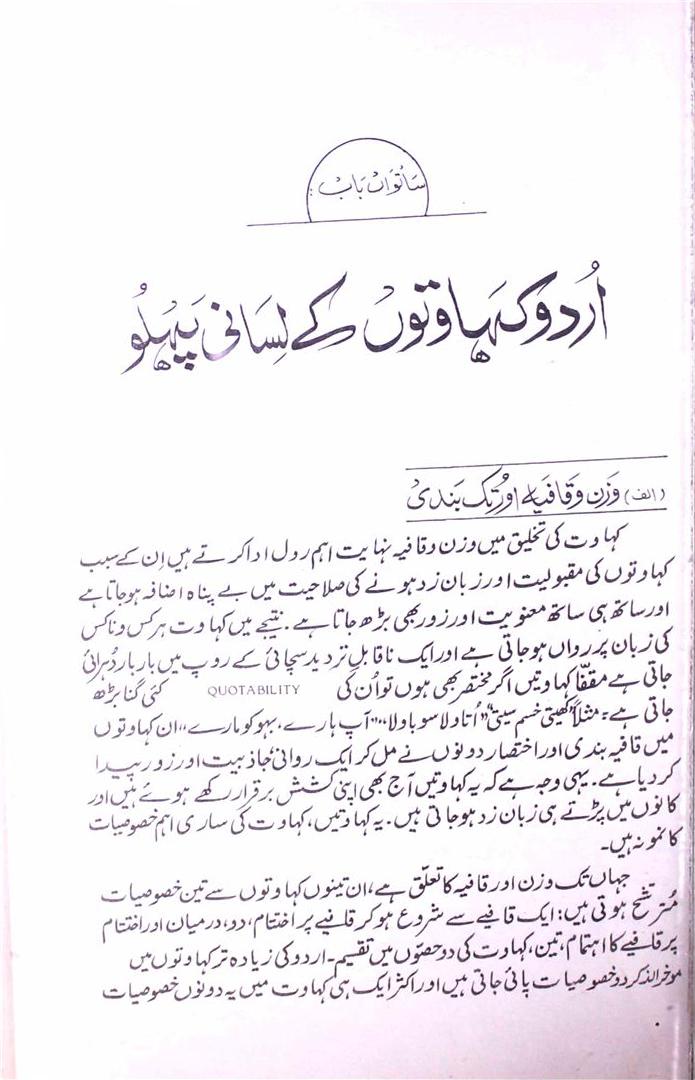 ساتواں باب:
اُردو کہاوتوں کے لِسانی پہلوُ
(الف) وزن وقافیہ اور تُک بندی
کہاوت کی تخلیق میں وزن وقافیہ نہایت اہم رول ادا کرتے ہیں اِن کے سبب
کہاوتوں کی مقبولیت اور زبان زد ہونے کی صلاحیت میں بے پناہ اضافہ ہوجاتا ہے
اور ساتھ ہی ساتھ معنویت اور زور بھی بڑھ جاتا ہے۔ نتیجے میں کہاوت ہر کس وناکس
کی زبان پر رواں ہوجاتی ہے اور ایک ناقابلِ تردید سچائی کے روپ میں بار بار دُہرائی
جاتی ہے مقفّا کہاوتیں اگر مختصر بھی ہوں تو اُن کی QUOTABILITY کئی گنا بڑھ
جاتی ہے: مثلاً "کھیتی خسم سیتی" "اُتاولا سو باولا"، "آپ ہارے، بہو کو مارے"، ان کہاوتوں
میں قافیہ بندی اور اختصار دونوں نے مل کر ایک روانی، جاذبیت اور زور پیدا
کر دیا ہے۔ یہی وجہ ہے کہ یہ کہاوتیں آج بھی اپنی کشش برقرار رکھے ہوئے ہیں اور
کانوں میں پڑتے ہی زبان زد ہوجاتی ہیں۔ یہ کہاوتیں، کہاوت کی ساری اہم خصوصیات
کا نمونہ ہیں۔
جہاں تک وزن اور قافیہ کا تعلّق ہے، ان تینوں کہاوتوں سے تین خصوصیات
مُترشّح ہوتی ہیں: ایک قافیے سے شروع ہوکر قافیے پر اختتام، دو، درمیان اور اختتام
پر قافیے کا اہتمام، تین، کہاوت کی دو حصّوں میں تقسیم۔ اردو کی زیادہ تر کہاوتوں میں
موخرالذکر دو خصوصیات پائی جاتی ہیں اور اکثر ایک ہی کہاوت میں یہ دونوں خصوصیات